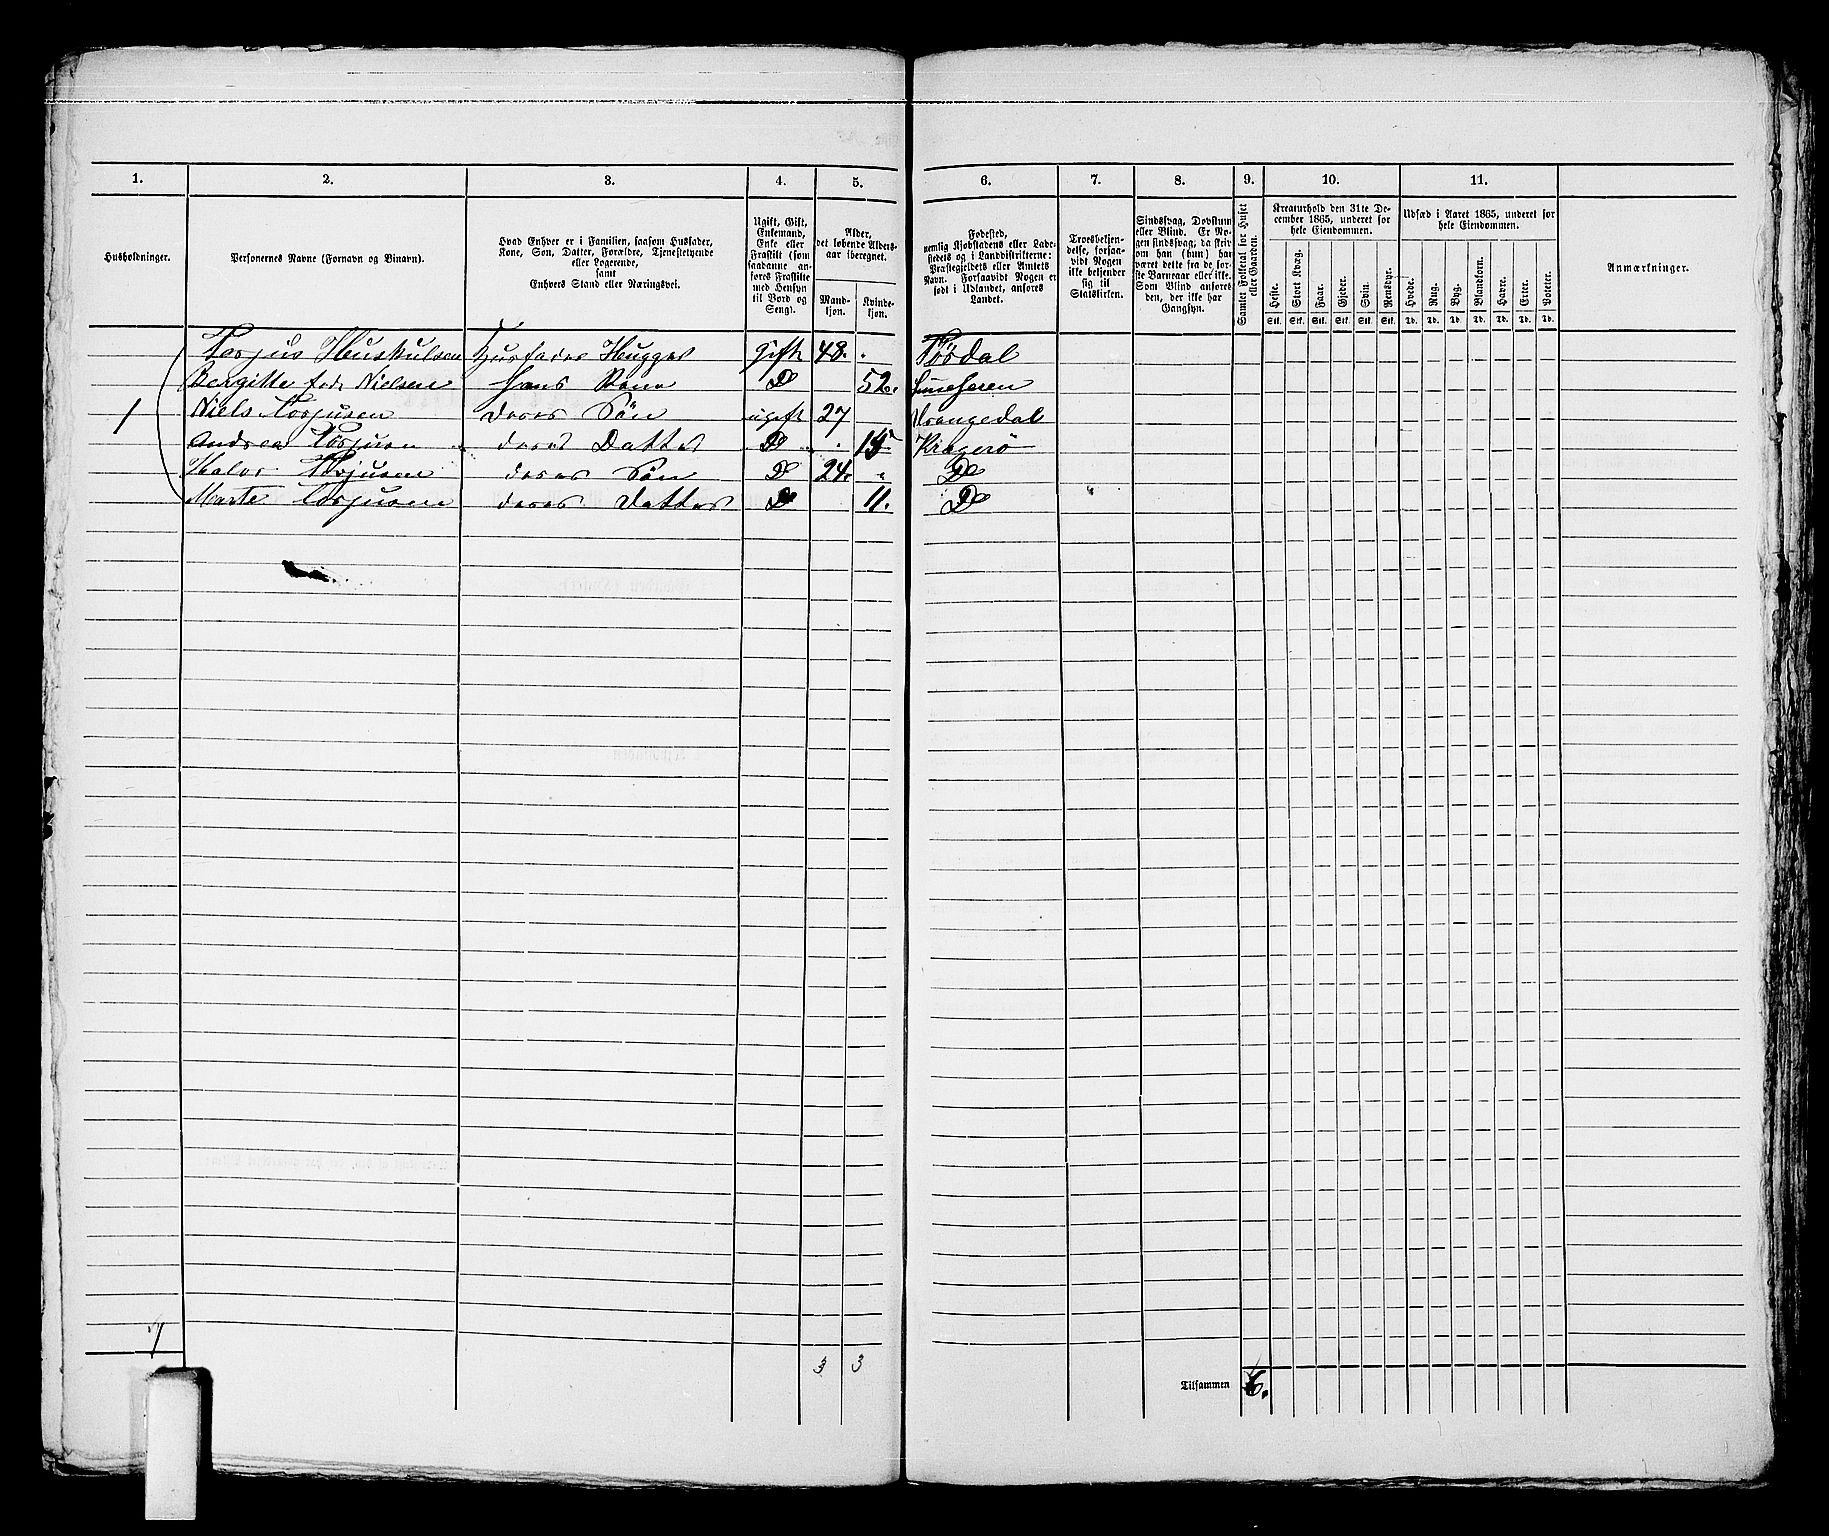 1. 2. 3. 4. 5. 6. 7. 8. 9. 10. 11.
Husholdninger.
Personernes Navne (Fornavn og Binavn).
Hvad Enhver er i Familien, saasom Husfader,
Kone, Søn, Datter, Forældre, Tjenestetyende
eller Logerende,
samt
Enhvers Stand eller Næringsvei.
Ugift, Gift,
Enkemand,
Enke eller
Fraskilt (som
saadanne an-
føres Fraskilte
med Hensyn
til Bord og
Seng).
Alder,
det løbende Alders-
aar iberegnet.
Mand-
kjøn.
Kvinde-
kjøn.
Fødested,
nemlig Kjøbstadens eller Lade-
stedets og i Landdistrikterne:
Præstegjeldets eller Amtets
Navn. Forsaavidt Nogen er
født i Udlandet, anføres
Landet.
Troesbekjen-
delse, forsaa-
vidt Nogen
ikke bekjender
sig til
Statskirken.
Sindssvag, Døvstum
eller Blind. Er No-
gen sindssvag, da skriv
om han (hun) har
været dette fra de før-
ste Barneaar eller ikke.
Som Blind anføres
den, der ikke har
Gangsyn.
Samlet Folketal for Huset
eller Gaarden.
Kreaturhold den 31te De-
cember 1865, underet for
hele Eiendommen.
Heste. Stort Kvæg. Faar. Gjeder. Svin. Rensdyr.
Stk. Stk. Stk. Stk. Stk. Stk.
Udsæd i Aaret 1865, underet for
hele Eiendommen.
Hvede. Rug. Byg. Blandkorn. Havre. Erter. Poteter.
Td. Td. Td. Td. Td. Td. Td.
Anmærkninger.
Torjus Huskulsen Husfader Hugger gift 48. Tørdal
Bergitte fød Nielsen hans Kone Do 52.
1 Niels Torjusen deres Søn ugift 27 Drangedal
Andrea Torjusen deres Datter Do 15 Kragerö
Halvor Torjusen deres Søn Do 24. Do
Marte Torjusen deres Datter Do 11. Do
1
3 3
Tilsammen 6.